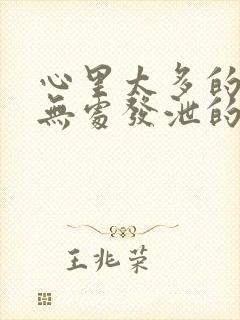 心里太多的
無處發泄的
王兆荣